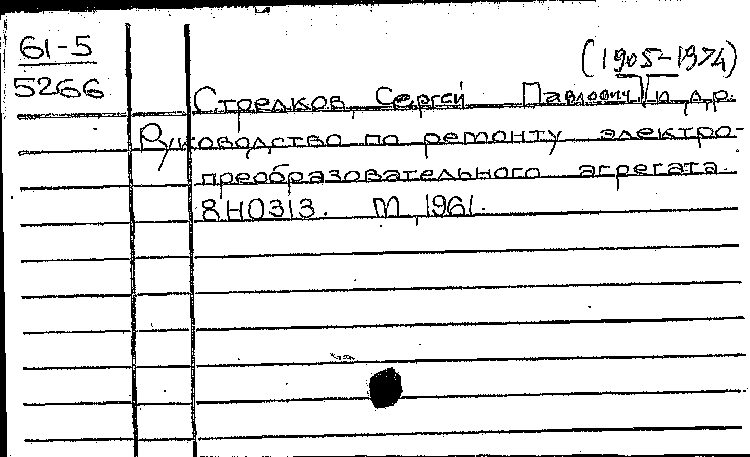 61-5
5266
(1905-1974)
Стрелков, Сергей Павлович и др.
Руководство по ремонту электро-
преобразовательного агрегата
8Н0313. М, 1961.